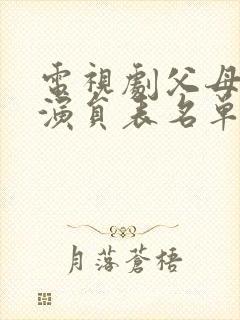 電視劇父母
演員表名單
月落蒼梧